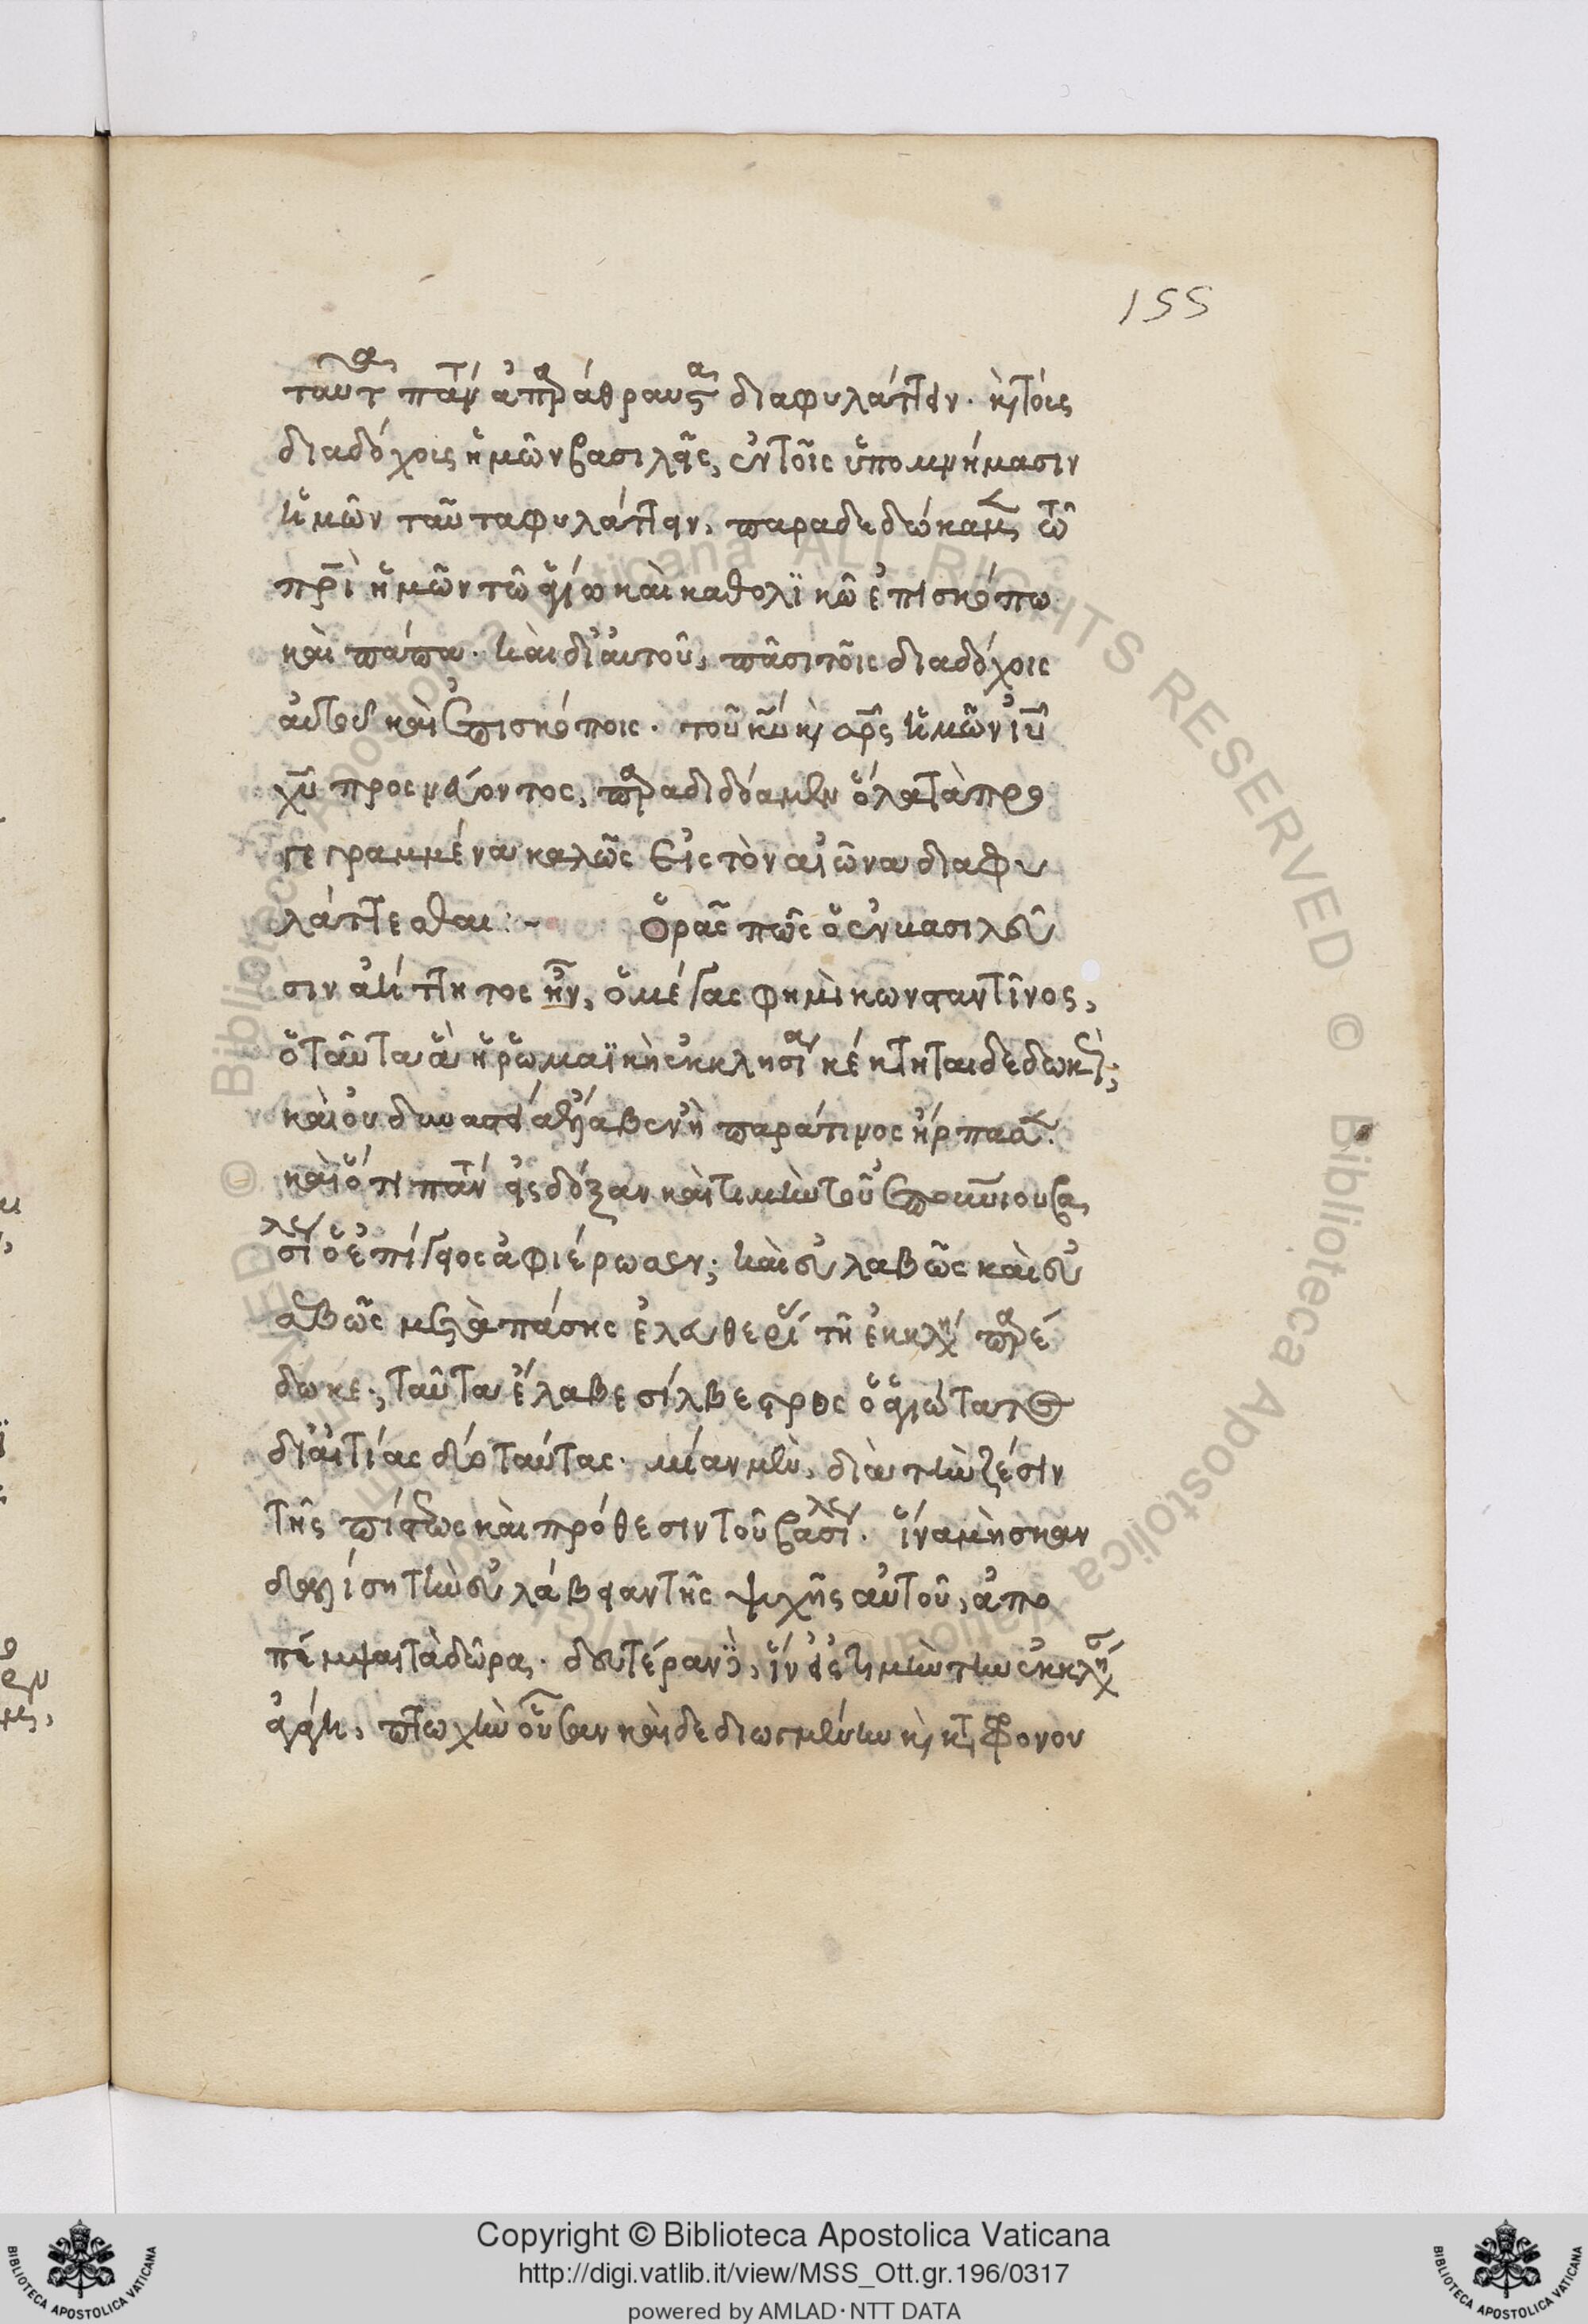 155
ταῦτα πάντα ἀπαράθραυστα διαφυλάττειν· καὶ τοῖς
διαδόχοις ἡμῶν βασιλεῖς, ἐν τοῖς ὑπομνήμασιν
ἡμῶν ταῦτα φυλάττειν, παραδεδώκαμεν τῶ
πρὶ ἡμῶν τῶ ἁγίω καὶ καθολϊκῶ ἐπισκόπω
καὶ πάπα· καὶ δι' αὐτοῦ, πᾶσι τοῖς διαδόχοις
αὐτοῦ καὶ ἐπισκόποις· τοῦ κυ καὶ σρς ἡμῶν ἰυ
χυ προσνεύοντος, παραδιδόαμεν ὅλα τὰ προ
γεγραμμένα καλῶς εἰς τὸν αἰῶνα διαφυ
λάττεσθαι :~ Ὁρᾶς πῶς ὁ ἐν βασιλεῦ
σιν ἀήττητος ἦν, ὁ μέγας φημὶ κωνσταντῖνος,
ὁ ταῦτα ἃ ἡ ῥωμαϊκὴ ἐκκλησία κέκτηται δεδωκὼς;
καὶ οὐ δυναστεία ἔλαβεν ἢ παράτιμος ἥρπασεν.
καὶ ὅτι πάντα εἰς δόξαν καὶ τιμὴν τοῦ ἐπουνιου βα
σιλέως ὁ ἐπίγειος ἀφιέρωσεν; καὶ εὐλαβῶς καὶ εὐ
σεβῶς μετὰ πάσης ἐλευθερίας τῆ ἐκκλησία παρέ
δωκε·, ταῦτα ἔλαβε σίλβεστρος ὁ ἁγιώτατος
δι' αἰτίας δύο ταύτας· μίαν μὲν, διὰ τὴν ζέσιν
τῆς πίστεως καὶ πρόθεσιν τοῦ βασιλέως· ἵνα μὴ σκαν
δαλίση τὴν εὐλάβειαν τῆς ψυχῆς αὐτοῦ, ἀπο
πέμψαι τὰ δῶρα· δευτέραν δὲ, ἵν' εἰς τιμὴν τὴν ἐκκλησίαν
ἀγάγη, πτωχὴν οὖσαν καὶ δεδιωγμένην καὶ κατὰ φόνον